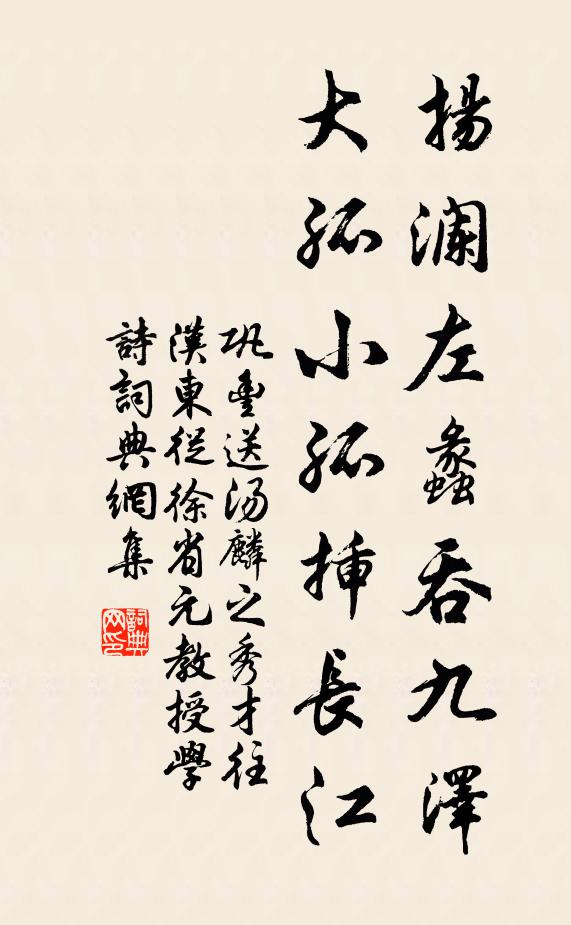 揚瀾左蠡吞九澤
大孤小孤挿長江
巩豊送湯麟之秀才往
漢東從徐省元教授學
詩詞典網集
詞典网印